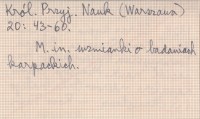 Król. Przyj. Nauk (Warszawa)
20: 43-60.
M. in. wzmianki o badaniach
karpackich.